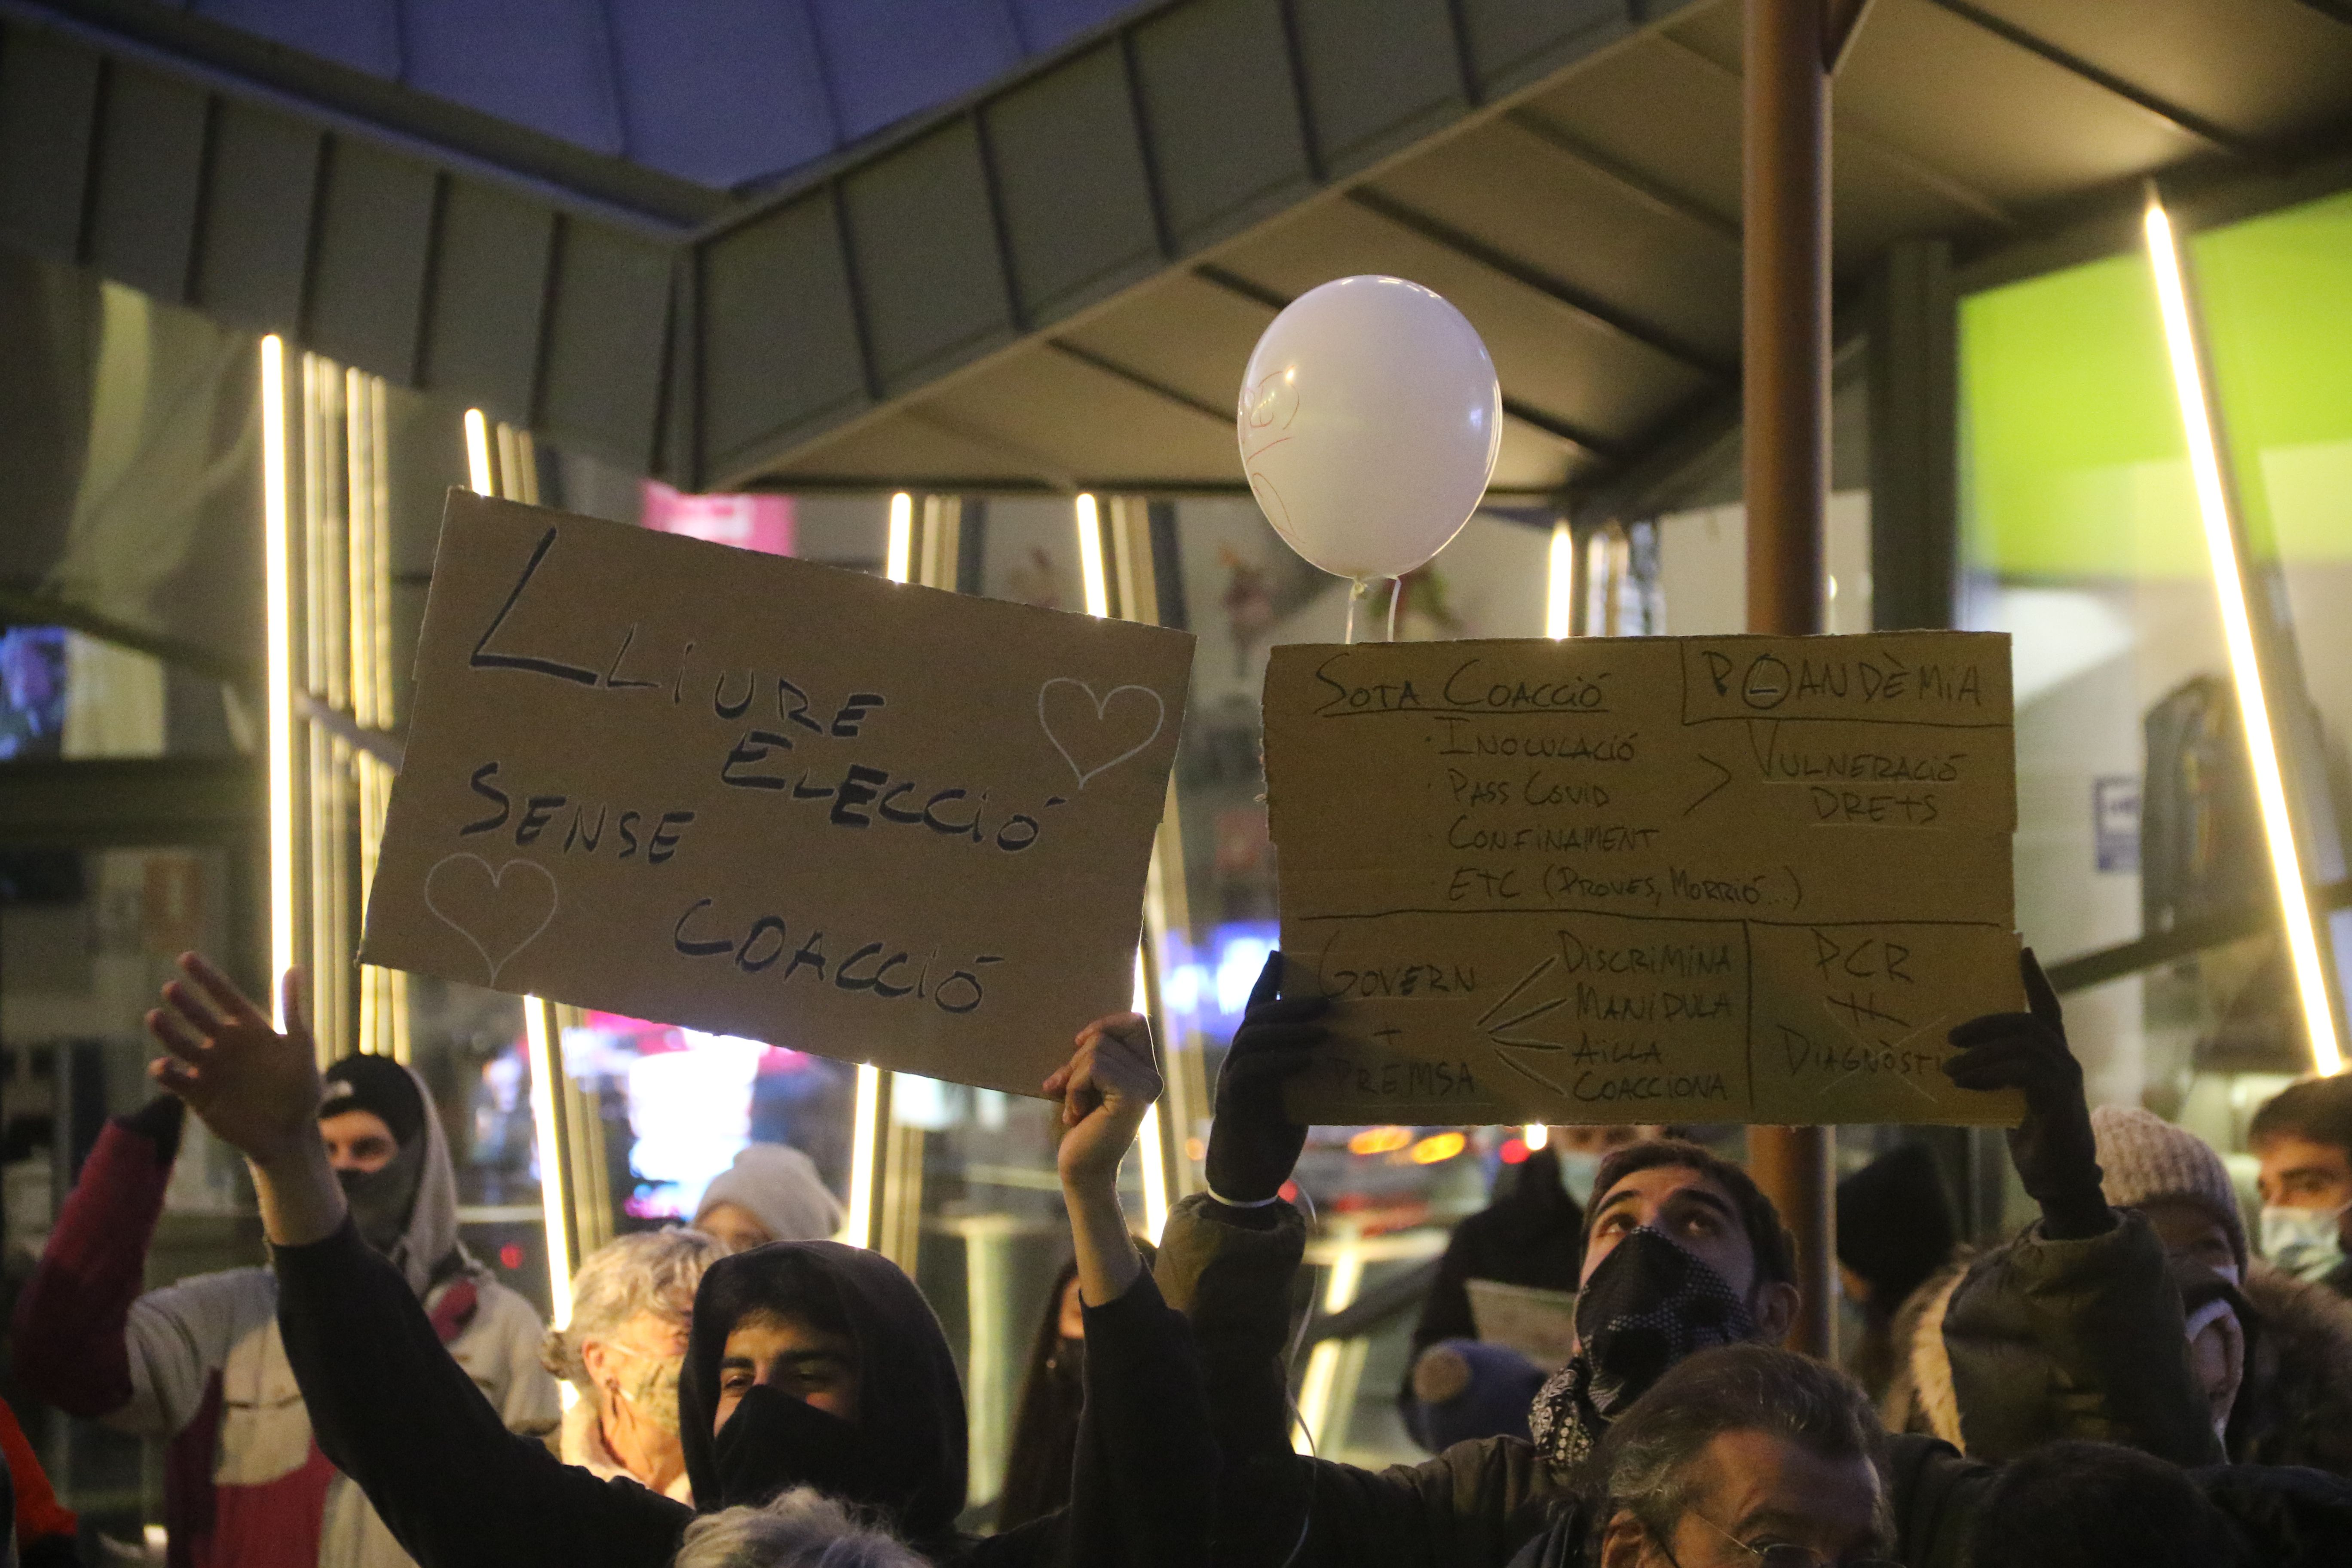 LLIURE
ELECCIÓ
SENSE
COACCIÓ
SOTA COACCIÓ
· INOCULACIÓ
· PASS COVID
· CONFINAMENT
· ETC (PROVES, MORRIÓ...)
PLANDÈMIA
> VULNERACIÓ
DRETS
GOVERN
+
PREMSA
DISCRIMINA
MANIPULA
AÏLLA
COACCIONA
PCR
≠
DIAGNÒSTI